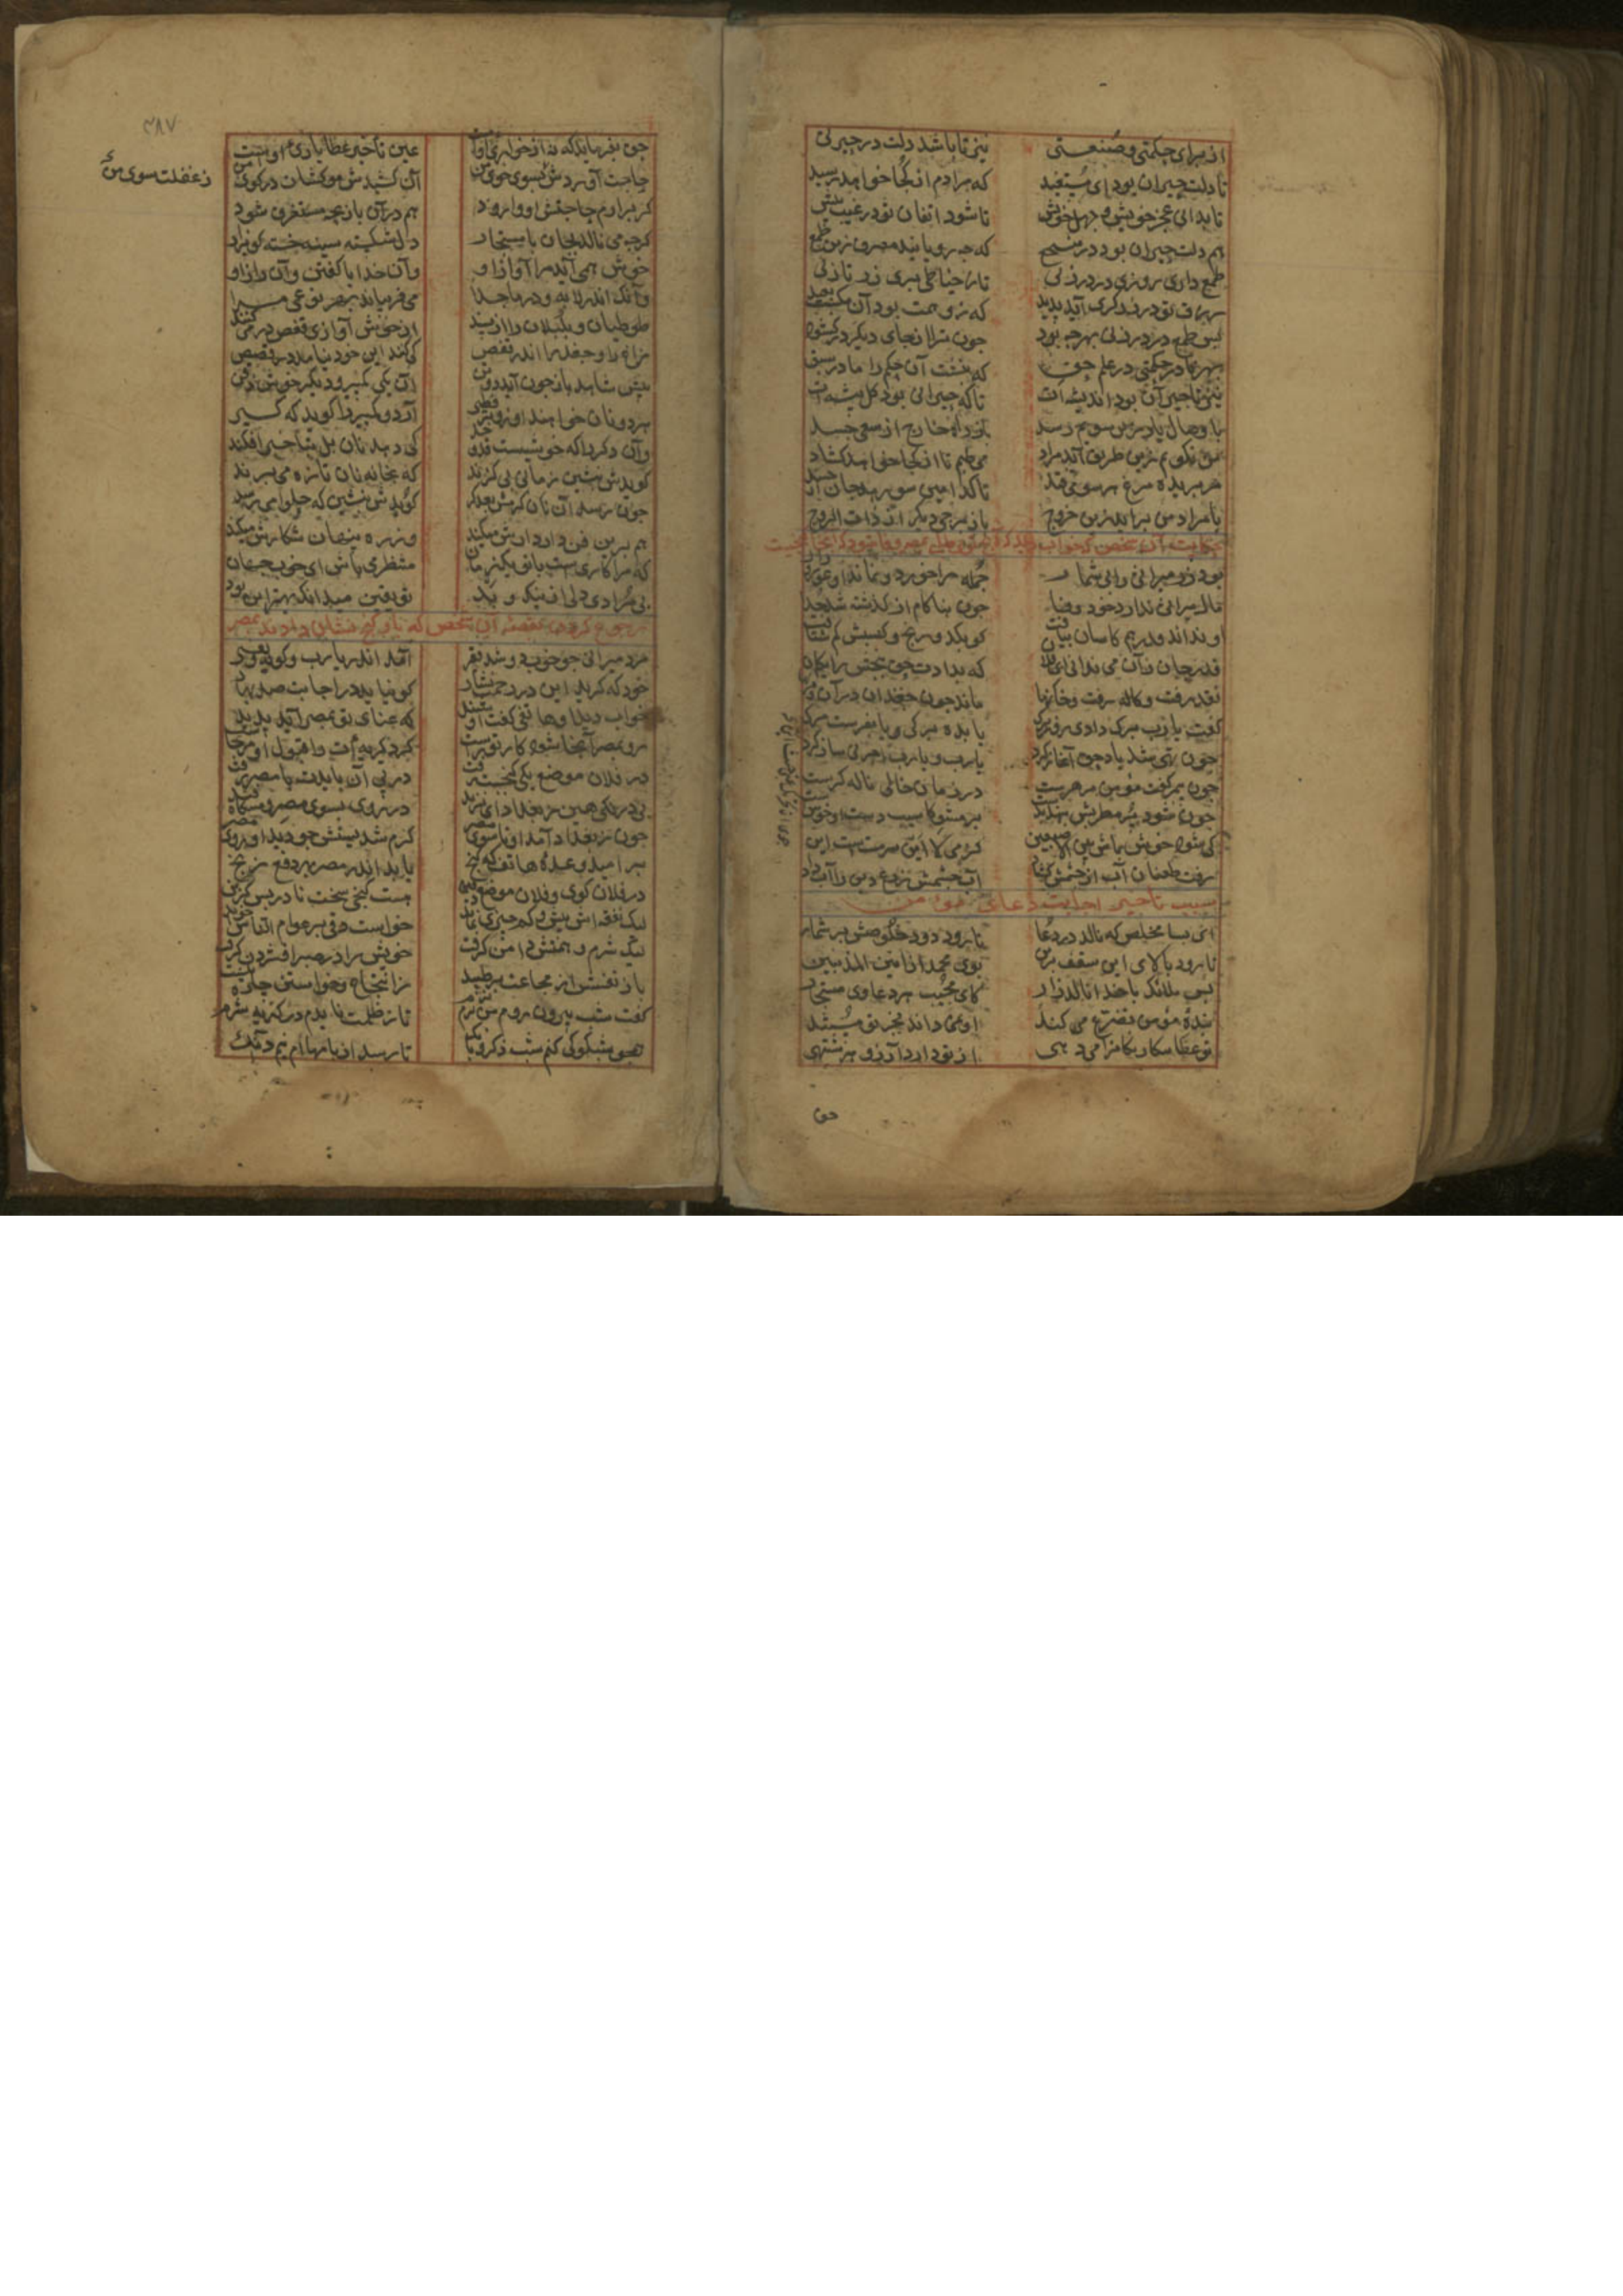 از برای حکمتی و صنعتی نیز تا باشد دلت در حیرتی
تا دلت حیران بود ای مستفید که مرادم از کجا خواهد رسید
تا بدانی عجز خویش و جهل خویش تا شود ایقان تو در غیب بیش
هم دلت حیران بود در منتجع که چه رویاند مصرف زین طمع
طمع داری روزی در درزیی تا ز خیاطی بری زر تا زیی
رزق تو در زرگری آید پدید که ز وهمت بود آن مکسب بعید
پس طمع در درزیی بهر چه بود چون ترا از جای دیگر در گشود
بهر نادر حکمتی در علم حق که نبشت آن حکم را ما در سبق
نیز تا حیران بود اندیشه‌ات تا که حیرانی بود کل پیشه‌ات
یا وصال یار زین سعیم رسد یا ز راه خارج از سعی جسد
من نگویم زین طریق آید مراد می طپم تا از کجا خواهد گشاد
سر بریده مرغ هر سو می‌فتد تا کدامین سو رهد جان از جسد
یا مراد من برآید زین خروج یا ز برجی دیگر از ذات البروج
حکایت آن شخص که خواب دید که
بود یک میراثی
مال میراثی ندارد خود وفا چون بناکام از گذشته شد جدا
او نداند قدر هم کاسان بیافت کو بکد و رنج و کسبش کم شتافت
قدر جان زان می ندانی ای فلان که بدادت حق ببخشش رایگان
نقد رفت و کاله رفت و خانها ماند چون جغدان در آن
گفت یا رب برگ دادی رفت برگ یا بده برگی و یا بفرست مرگ
چون تهی شد یاد حق آغاز کرد یا رب و یا رب اجرنی ساز کرد
چون پیمبر گفت مؤمن مزهرست در زمان خالیی ناله گرست
چون شود پر مطربش بنهد ز دست پر مشو کاسیب دست او خوش است
تی شو و خوش باش بین الاصبعین کز می لا این سرمست است این
رفت طغیان آب از چشمش گشاد آب چشمش زرع دین را آب داد
سبب تاخیر اجابت دعای مؤمن
ای بسا مخلص که نالد در دعا تا رود دود خلوصش بر سما
تا رود بالای این سقف برین بوی مجمر از انین المذنبین
پس ملائک با خدا نالند زار کای مجیب هر دعا وی مستجار
بندهٔ مؤمن تضرع می کند او نمی داند بجز تو مستند
تو عطا بیگانگان را می دهی از تو دارد آرزو هر مشتهی
حق
۲۸۷
حق بفرماید که نه از خواری اوست عین تأخیر عطا یاری اوست
حاجت آوردش ز غفلت سوی من آن کشیدش موکشان در کوی من
ز غفلت سوی من
گر برآرم حاجتش او وا رود هم در آن بازیچه مستغرق شود
گرچه می نالد بجان یا مستجار دل شکسته سینه خسته گو بزار
خوش همی آید مرا آواز او وآن خدایا گفتن و آن راز او
وآنک اندر لابه و در ماجرا می‌فریباند بهر نوعی مرا
طوطیان و بلبلان را از پسند از خوش آوازی قفص در می کنند
زاغ را و جغد را اندر قفص کی کنند این خود نیامد در قصص
پیش شاهد باز چون آید دو تن آن یکی کمپیر و دیگر خوش ذقن
هر دو نان خواهند او زوتر فطیر آرد و کمپیر را گوید که گیر
وآن دگر را که خوشستش قد و خد کی دهد نان بل بتأخیر افکند
گویدش بنشین زمانی بی گزند که بخانه نان تازه می‌پزند
چون رسد آن نان گرمش بعد کد گویدش بنشین که حلوا می رسد
هم برین فن داردارش میکند وز ره پنهان شکارش میکند
که مرا کاریست با تو یکزمان منتظر می باش ای خوب جهان
بی‌مرادی مؤمنان از نیک و بد تو یقین میدان که بهر این بود
رجوع کردن بقصهٔ آن شخص که باو گنج نشان دادند بمصر
مرد میراثی چو خورد و شد فقیر آمد اندر یا رب و گریه و نفیر
خود که کوبد این در رحمت نثار کو نیابد در اجابت صد بهار
خواب دید او هاتفی گفت او شنید که غنای تو بمصر آید پدید
رو بمصر آنجا شود کار تو راست کرد گریه‌ات را قبول او مرتجاست
در فلان موضع یکی گنجیست زفت در پی آن بایدت تا مصر رفت
بی درنگی هین ز بغداد ای نژند در روی بسوی مصر و
چون ز بغداد آمد او تا سوی مصر گرم شد پشتش چو دید او روی مصر
بر امید وعدهٔ هاتف که گنج یابد اندر مصر بهر دفع رنج
در فلان کوی و فلان موضع دفین هست گنجی سخت نادر بس گزین
لیک نفقه‌اش بیش و کم چیزی نماند خواست دقی بر عوام الناس
لیک شرم و همتش دامن گرفت خویش را در صبر افشردن گرفت
باز نفسش از مجاعت برطپید ز انتجاع و خواستن چاره
گفت شب بیرون روم من نرم نرم تا ز ظلمت نایدم در کدیه شرم
همچو شبکوکی کنم شب ذکر و بانگ تا رسد از بامهاام نیم دانگ